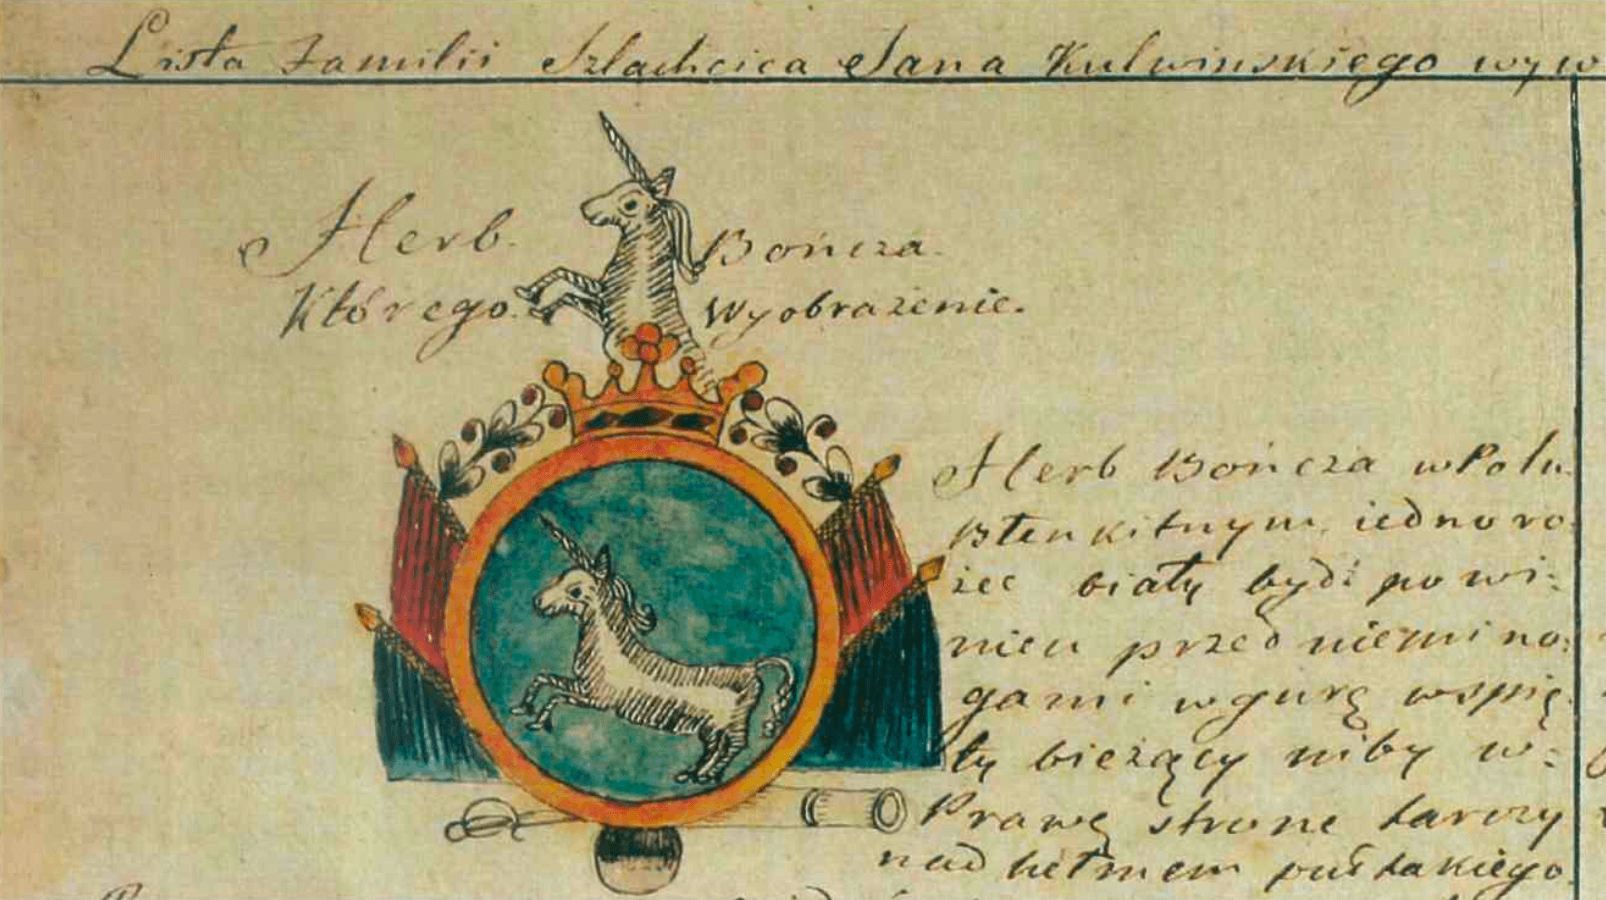 Lista Familii Szlachcica Jana Kulwinskiego wyw
Herb. Bończa.
Którego. Wyobrażenie.
Herb Bończa w Polu
Błenkitnym iednoro
żec biały bydź powi:
nien przedniemi no:
gami w gurę wspię
ty bieżący niby w:
Prawę stronę tarczy
nad hełmem pułtakiego